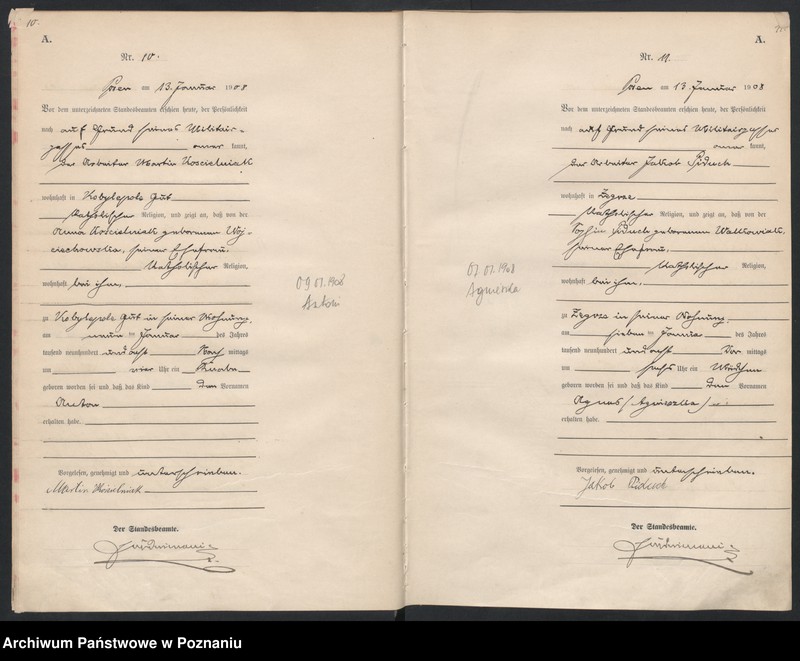 10.
A.
Nr. 10.
Posen am 13. Januar 1908
Vor dem unterzeichneten Standesbeamten erschien heute, der Persönlichkeit
nach auf Grund seines Militair-
passes aner kannt,
der Arbeiter Martin Koscielniak
wohnhaft in Kobylepole Gut
katholischer Religion, und zeigt an, daß von der
Anna Koscielniak geborenen Woj-
ciechowska, seiner Ehefrau,
katholischer Religion,
wohnhaft bei ihm,
zu Kobylepole Gut in seiner Wohnung,
am neun ten Januar des Jahres
tausend neunhundert und acht Nach mittags
um vier Uhr ein Knabe
geboren worden sei und daß das Kind den Vornamen
Anton
erhalten habe.
Vorgelesen, genehmigt und unterschrieben.
Martin Koscielniak
Der Standesbeamte.
09.01.1908
Antoni
A.
Nr. 11.
Posen am 13. Januar 1908
Vor dem unterzeichneten Standesbeamten erschien heute, der Persönlichkeit
nach auf Grund seines Militairpasses
aner kannt,
der Arbeiter Jakob
wohnhaft in Zegrze
katholischer Religion, und zeigt an, daß von der
geborenen Walkowiak,
seiner Ehefrau,
katholischer Religion,
wohnhaft bei ihm,
zu Zegrze in seiner Wohnung,
am sieben ten Januar des Jahres
tausend neunhundert und acht Vor mittags
um sechs Uhr ein Mädchen
geboren worden sei und daß das Kind den Vornamen
Agnes (Agnieszka)
erhalten habe.
Vorgelesen, genehmigt und unterschrieben.
Jakob
Der Standesbeamte.
07.01.1908
Agnieszka
Archiwum Państwowe w Poznaniu